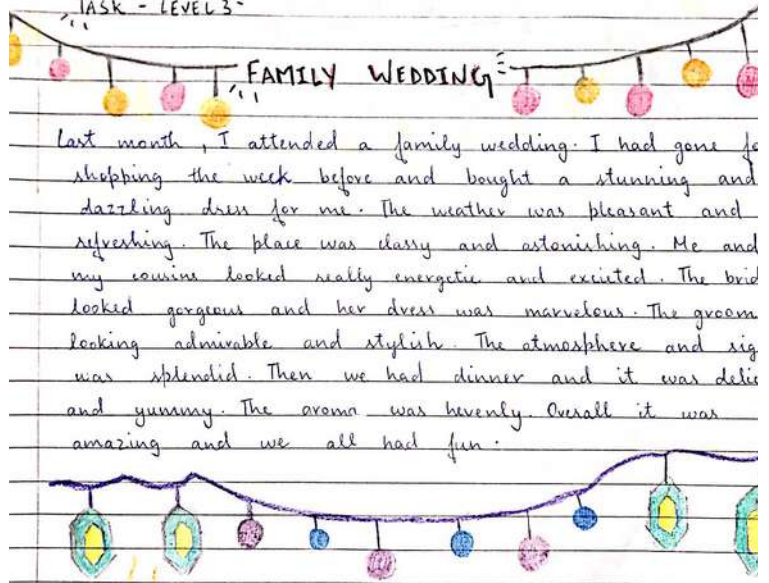 TASK - LEVEL 3-
FAMILY WEDDING
Last month, I attended a family wedding. I had gone
shopping the week before and bought a stunning and
dazzling dress for me. The weather was pleasant and
refreshing. The place was classy and astonishing. Me and
my cousins looked really energetic and exciuted. The
looked gorgeous and her dress was marvelous. The groom
looking admirable and stylish. The atmosphere and
was splendid. Then we had dinner and it was
and yummy. The aroma was hevenly. Overall it was
amazing and we all had fun.